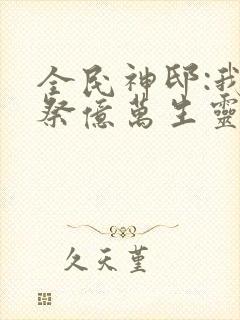 全民神邸:我
祭億萬生靈
久天堇